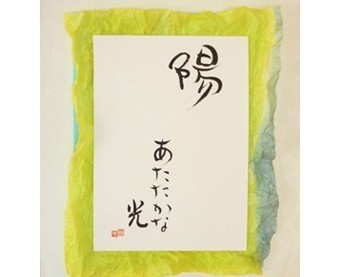 陽
あたたかな
光